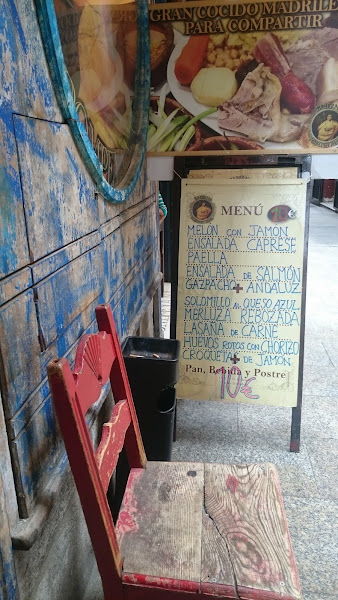 GRAN COCIDO MADRILE
PARA COMPARTIR
MENÚ
MELÓN CON JAMON
ENSALADA CAPRESE
PAELLA
ENSALADA DE SALMÓN
GAZPACHO + ANDALUZ
SOLOMILLO AL QUESO AZUL
MERLUZA REBOZADA
LASAÑA DE CARNE
HUEVOS ROTOS CON CHORIZO
CROQUETA + DE JAMÓN
Pan, Bebida y Postre
10€